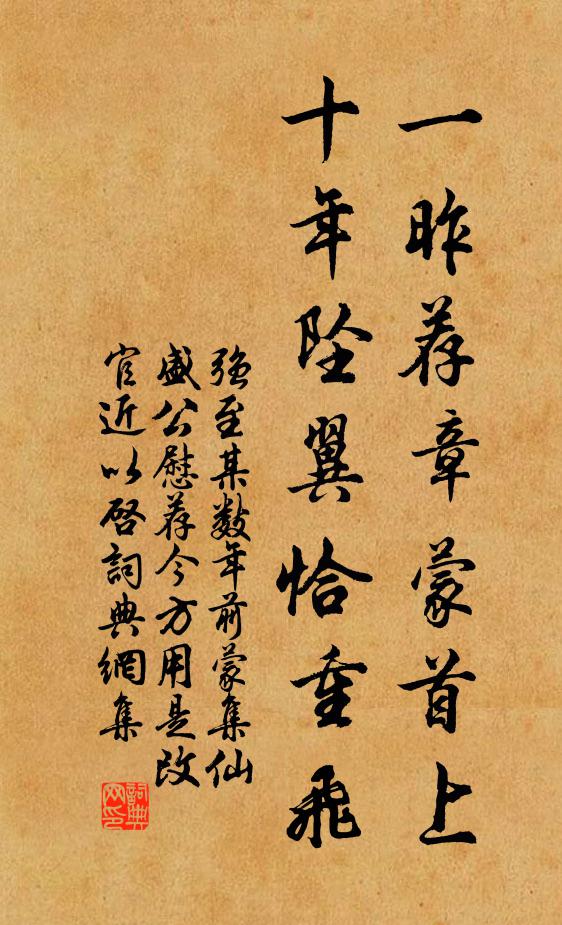 一昨荐章蒙首上
十年坠翼恰重飛
強至某数年前蒙集仙
盛公慰荐今方用是改
官近以啓詞典網集
詞典
网印